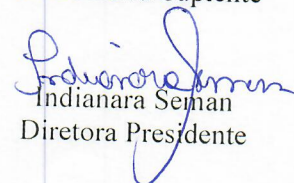 Indianara Seman
Indianara Seman
Diretora Presidente